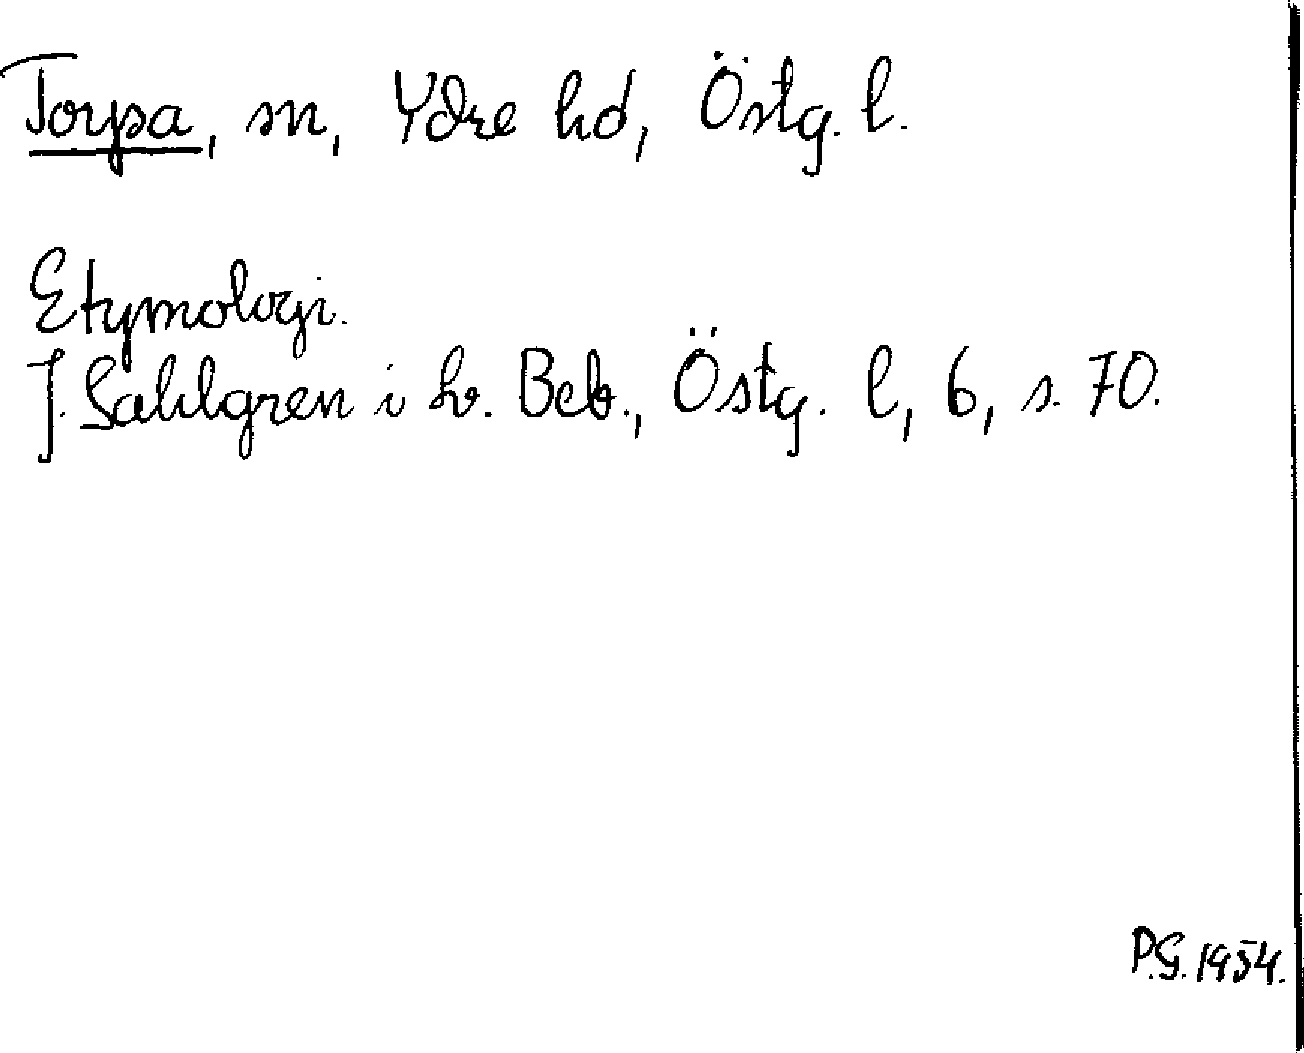 Torpa, sn, Ydre hd, Östg. l.
Etymologi.
J. Sahlgren i Sv. Beb., Östg. l, 6, s. 70.
P.G. 1954.